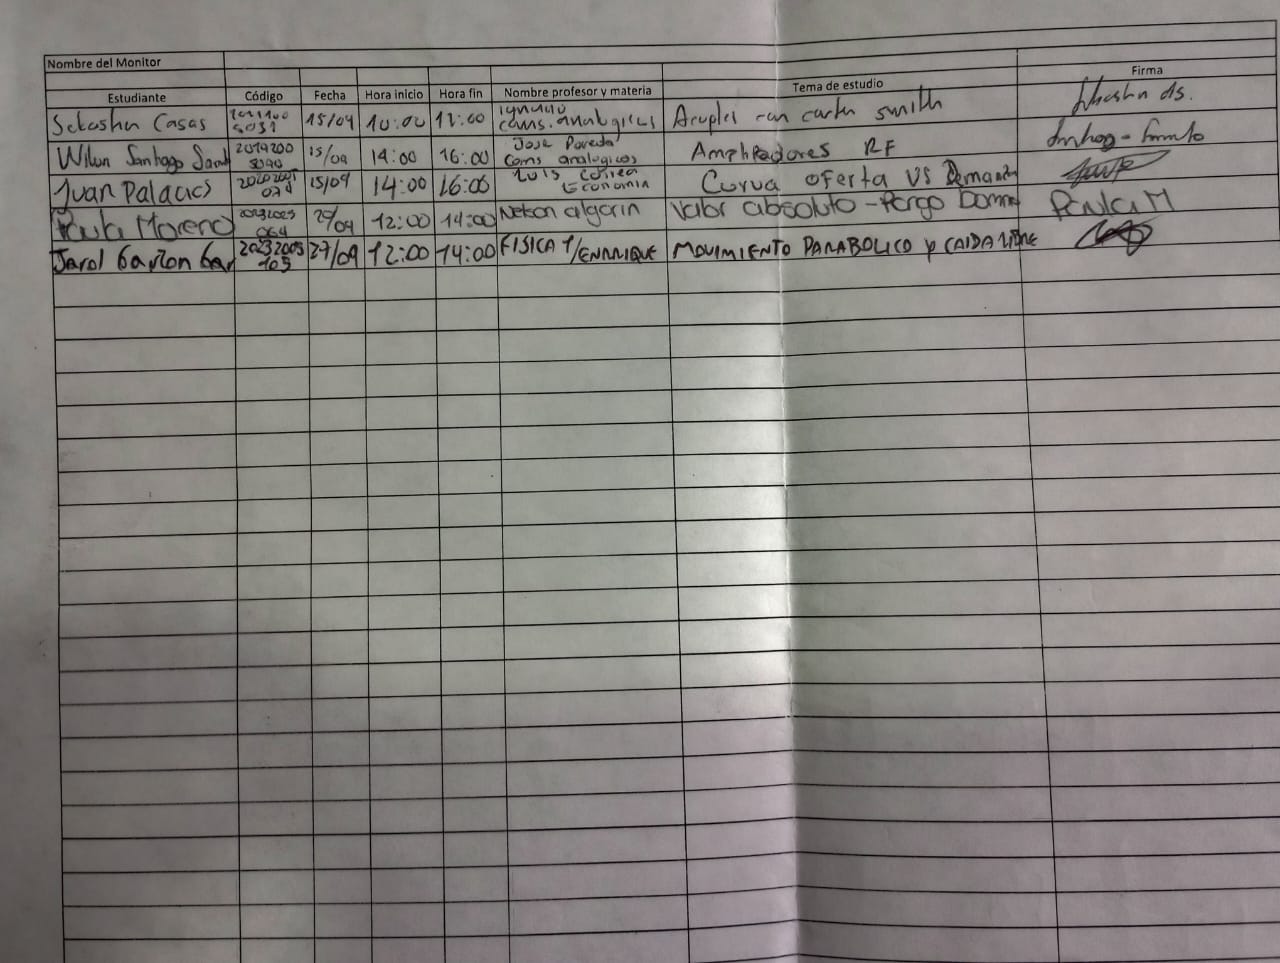 Nombre del Monitor
Estudiante Código Fecha Hora inicio Hora fin Nombre profesor y materia Tema de estudio Firma
Casas 15/09 10:00 12:00 coms. analogicas con carta smith
Wilson Santiago 2019200 15/09 14:00 16:00 Jose Poveda Coms analogicas Amplificadores RF
Juan Palacios 15/09 14:00 16:00 Luis Correa Economia Curva oferta VS Demanda
Paula Moreno 064 /09 12:00 14:00 Nelson algarin Valor absoluto - Rango Domini Paula M
Jarol Garzon Gar 20232005 105 27/09 12:00 14:00 FISICA 1/ENRRIQUE MOVIMIENTO PARABOLICO y CAIDA LIBRE